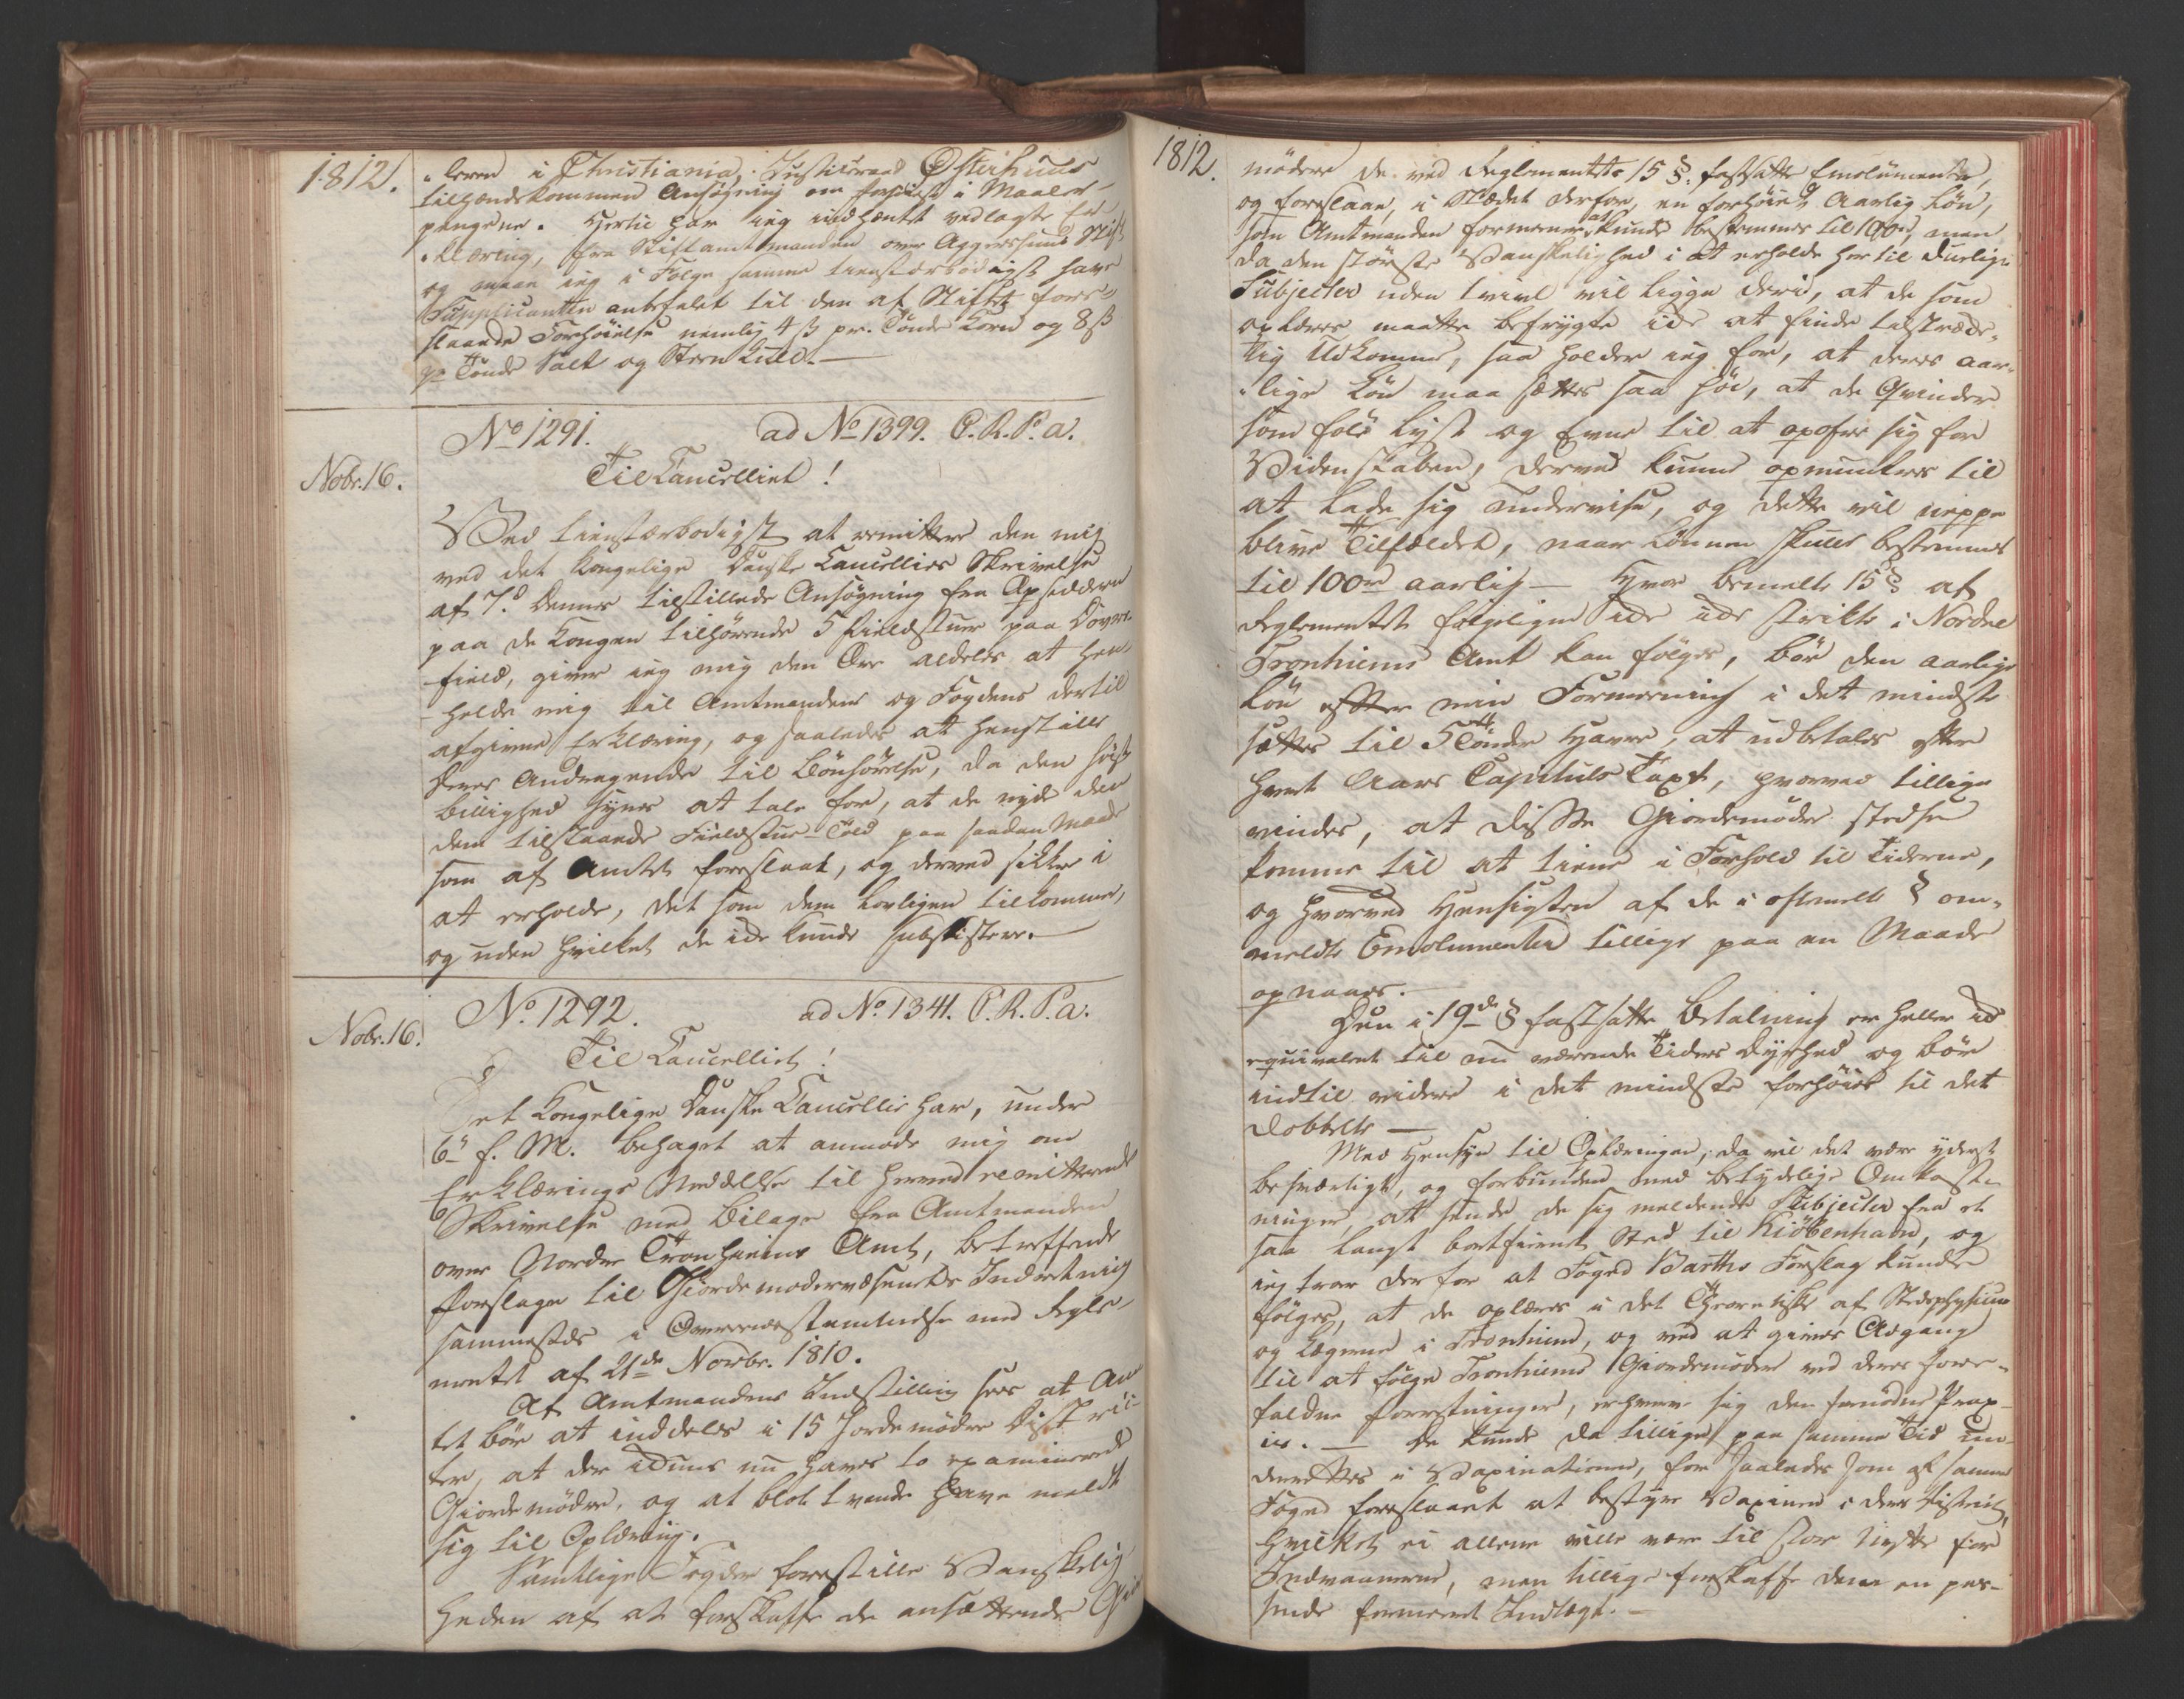 1812.
"leren i Christiania, Justitsraad Østerhuus
tilhændekommen Ansøgning om forhøielse i Maaler-
pengene. Hertil har ieg indhentet vedlagte Er-
"klæring, fra Stiftamtmanden over Aggershuus Stift
og maae ieg i Følge samme tienstærbødigst have
Supplicanten anbefalet til den af Stiftet fore-
slaaede Forhøielse nemlig 4 ß pr. Tønde Korn og 8 ß
pr Tønde Salt og Steen Kull.—
No 1291. ad No 1399. C. R. P. a.
Nobr. 16.
Til Cancelliet!
Ved tienstærbødigst at remittere den mig
ved det Kongelige Danske Cancellies Skrivelse
af 7.de Dennes tilstillede Ansøgning fra Opsidderne
paa de Kongen tilhørende 5 Fieldstuer paa Dovre-
field, giver ieg mig den Ære aldeles at hen-
holde mig til Amtmandens og Fogdens dertil
afgivne Erklæring, og saaledes at henstille
Deres Andragende til Bønhørelse, da den høist
billighed synes at tale for, at de nyde den
dem tilstaaede Fieldstue-Told paa saadan Maade
som af Amtet foreslaaet, og derved sikkre i
at erholde, det som dem lovligen tilkomme,
og uden hvilket de ide kunde subsistere.—
No. 1292. ad No. 1341. C. R. P. a.
Nobr. 16.
Til Cancelliet!
Det Kongelige Danske Cancellie har, under
6te f. M. behaget at anmode mig om
Erklærings Meddelelse til herved remitterende
Skrivelse med Bilage fra Amtmanden
over Nordre Tronhiems Amt, betreffende
Forslage til Giordemodervæsenets Indretning
sammesteds i Overeensstemmelse med Regle-
mentet af 21de Novbr. 1810.
Af Amtmandens Indstilling sees at Am-
tet bør at inddeles i 15 Jordemødre Distric-
ter, at der ikkuns nu haves to examinerede
Giordemødre, og at blot tvende have meldt
sig til Oplæring.
Samtlige Fogder forestille Vanskelig-
heden af at forskaffe de ansættende Gior
1812.
mødere de ved Reglementets 15 §. fastsatte Emolumenter,
og foreslaae, i Stædet derfor, en forhøiet Aarlig Løn,
som Amtmanden formener at kunde bestemmes til 100 rd, men
da den største Vanskelighed i at erholde her til duelige
Subjecter uden tvivl vil ligge deri, at de som
oplæres maatte befrygte ikke at finde tilstræde-
lig Udkomme, saa holder ieg for, at deres aar-
"lige Løn maa sættes saa høi, at de Qvinder
som føle Lyst og Evne til at opofre sig for
Videnskaben, derved kunne opmuntres til
at lade sig undervise, og dette vil neppe
blive Tilfældet, naar Lønnen skulle bestemmes
til 100 rd aarlig— Hvor bemelte 15 § af
Reglementet følgeligen ikke strikte i Nordre
Tronhiems Amt kan følges, bør den aarlige
Løn efter min Formening i det mindste
sættes til 5 Tønder Havre, at udbetales efter
hvert Aars Capituls Taxt, hvorved tillige
vindes, at disse Giordemødre stedse
komme til at tiene i Forhold til Tiderne,
og hvorved Hensigten af de i oftmelte § om-
meldte Emolumenter tillige paa en Maade
opnaaes.
Den i 19de § fastsatte Betalning er heller ikke
equivalent til nu værende Tiders Dyrhed og bør
indtil videre i det mindste forhøies til det
dobbelte—
Med Hensyn til Oplæringen, da vil det være yderst
besværligt, og forbunden med betydelige Omkost-
ninger, at sende de sig meldende Subjecter fra et
saa langt bortfiernet Sted til Kiøbenhavn, og
ieg troer derfor at Foged Barths Forslag kunde
følges, at de oplæres i det Theoretiske af Stadsphysicus
og Lægerne i Tronhiem, og ved at gives Adgang
til at følge Tronhiems Giordemødre ved deres fore-
faldne Forretninger, erhverve sig den fornødne Prax-
is.— De kunde da tillige paa samme Tid un-
derrettes i Vaxinationen, for saaledes som af samme
Foged foreslaaet at bestyre Vaxinen i deres District,
hvilket ei allene ville være til stor Nytte for
Indvaanerne, men tillige forskaffe dem en pas-
sende formeret Indtægt.—